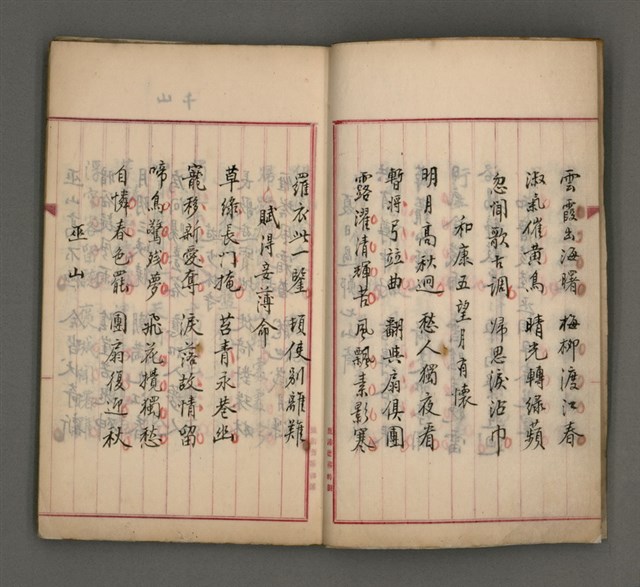 雲霞出海曙 梅柳渡江春
淑氣催黃鳥 晴光轉綠蘋
忽聞歌古調 歸思淚沾巾
和康五望月有懷
明月高秋迥 愁人獨夜看
暫將弓竝曲 翻與扇俱團
露濯清輝苦 風飄素影寒
羅衣此一鑒 頓使別離難
賦得妾薄命
草綠長門掩 苔青永巷幽
寵移新愛奪 淚落故情留
啼鳥驚殘夢 飛花攪獨愁
自憐春色罷 團扇復迎秋
巫山